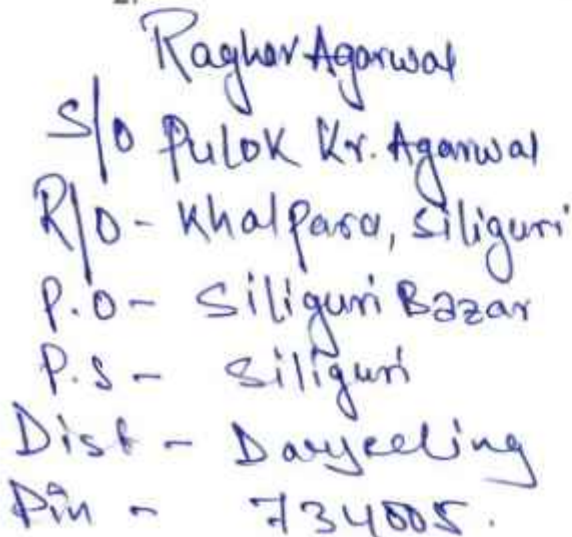 Raghav Agarwal
S/o Pulok Kr. Agarwal
R/O - Khalpara, Siliguri
P.O - Siliguri Bazar
P.S - Siliguri
Dist - Darjeeling
Pin - 734005.